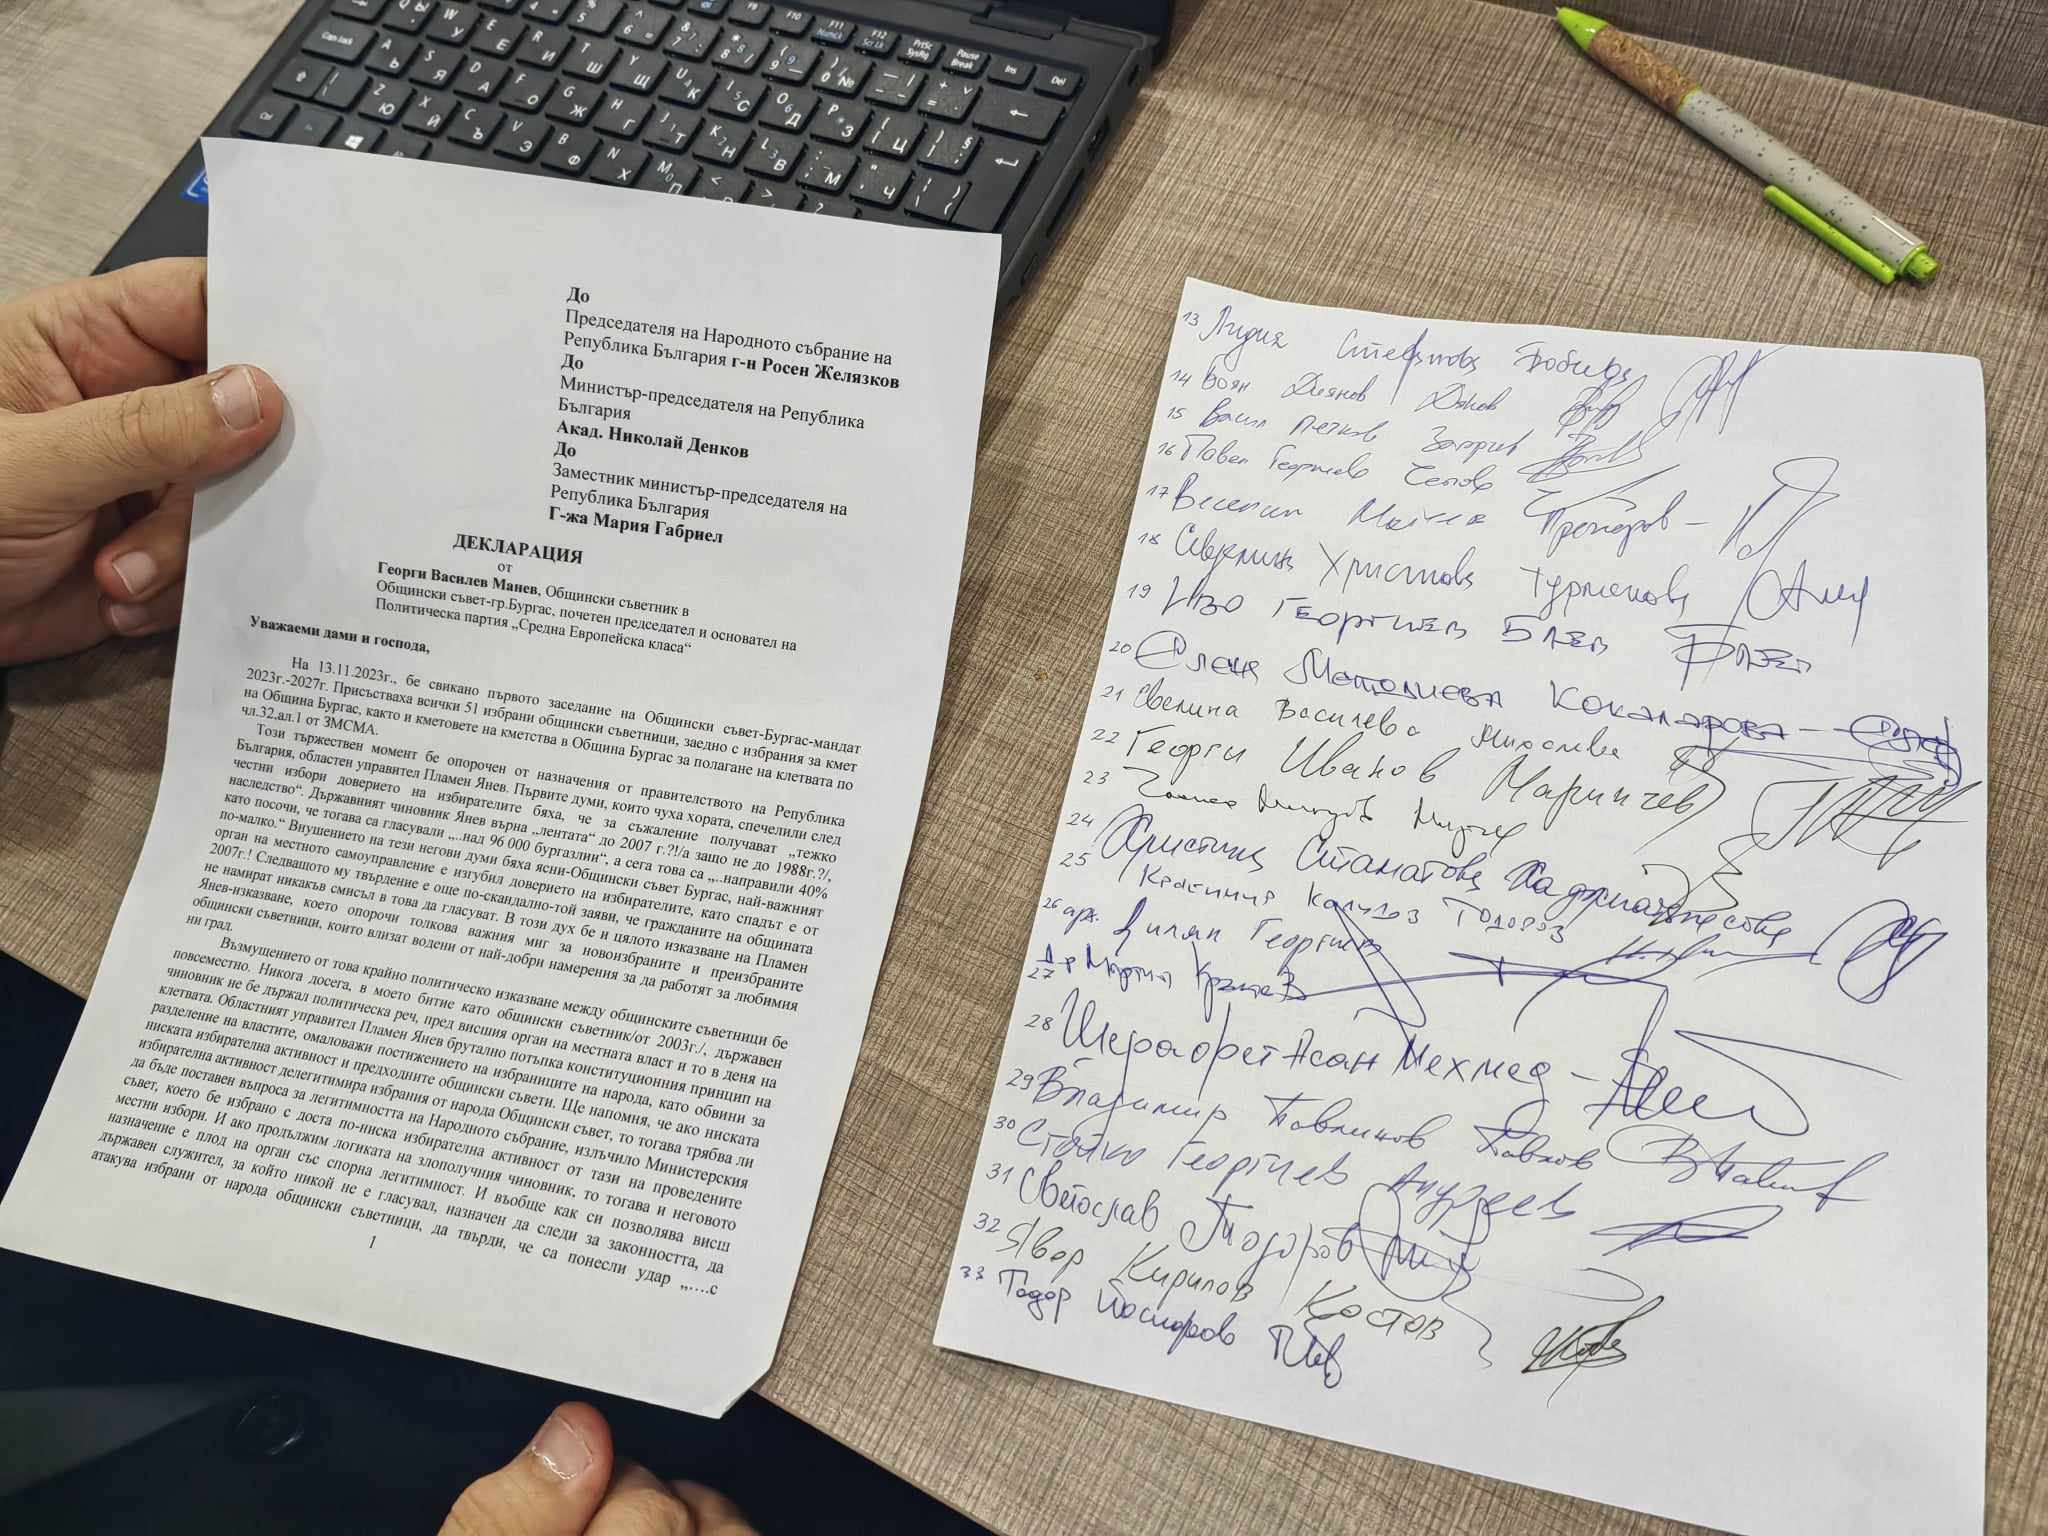 До
Председателя на Народното събрание на
Република България г-н Росен Желязков
До
Министър-председателя на Република
България
Акад. Николай Денков
До
Заместник министър-председателя на
Република България
Г-жа Мария Габриел
ДЕКЛАРАЦИЯ
от
Георги Василев Манев, Общински съветник в
Общински съвет-гр.Бургас, почетен председател и основател на
Политическа партия „Средна Европейска класа“
Уважаеми дами и господа,
На 13.11.2023г., бе свикано първото заседание на Общински съвет-Бургас-мандат
2023г.-2027г. Присъстваха всички 51 избрани общински съветници, заедно с избрания за кмет
на Община Бургас, както и кметовете на кметства в Община Бургас за полагане на клетвата по
чл.32,ал.1 от ЗМСМА.
Този тържествен момент бе опорочен от назначения от правителството на Република
България, областен управител Пламен Янев. Първите думи, които чуха хората, спечелили след
честни избори доверието на избирателите бяха, че за съжаление получават „тежко
наследство“. Държавният чиновник Янев върна „лентата“ до 2007 г.?!/а защо не до 1988г.?/,
като посочи, че тогава са гласували „..над 96 000 бургазлии“, а сега това са „..направили 40%
по-малко.“ Внушението на тези негови думи бяха ясни-Общински съвет Бургас, най-важният
орган на местното самоуправление е изгубил доверието на избирателите, като спадът е от
2007г.! Следващото му твърдение е още по-скандално-той заяви, че гражданите на общината
не намират никакъв смисъл в това да гласуват. В този дух бе и цялото изказване на Пламен
Янев-изказване, което опорочи толкова важния миг за новоизбраните и преизбраните
общински съветници, които влизат водени от най-добри намерения за да работят за любимия
ни град.
Възмущението от това крайно политическо изказване между общинските съветници бе
повсеместно. Никога досега, в моето битие като общински съветник/от 2003г./, държавен
чиновник не бе държал политическа реч, пред висшия орган на местната власт и то в деня на
клетвата. Областният управител Пламен Янев брутално потъпка конституционния принцип на
разделение на властите, омаловажи постижението на избраниците на народа, като обвини за
ниската избирателна активност и предходните общински съвети. Ще напомня, че ако ниската
избирателна активност делегитимира избрания от народа Общински съвет, то тогава трябва ли
да бъде поставен въпроса за легитимността на Народното събрание, излъчило Министерския
съвет, което бе избрано с доста по-ниска избирателна активност от тази на проведените
местни избори. И ако продължим логиката на злополучния чиновник, то тогава и неговото
назначение е плод на орган със спорна легитимност. И въобще как си позволява висш
държавен служител, за който никой не е гласувал, назначен да следи за законността, да
атакува избрани от народа общински съветници, да твърди, че са понесли удар „….с
1
13 Лидия Стефанова
14 Боян Диянов Дяков
15 Васил Петков
16 Павел Георгиев
17 Веселин Пренеров –
18 Севделина Христова Турменова
19 Иво Георгиев Баев
20 Елена Методиева Кокаларова –
21 Евелина Василева
22 Георги Иванов Маринчев
23
24 Христина Стаматова
25 Красимир Тодоров
26 арх. Георгиев
27 Д-р
28 Шерафет Асан Мехмед –
29 Владимир Павлинов Павлов
30 Стойко Георгиев Андреев
31 Светослав Тодоров
32 Явор Кирилов Костов
33 Тодор